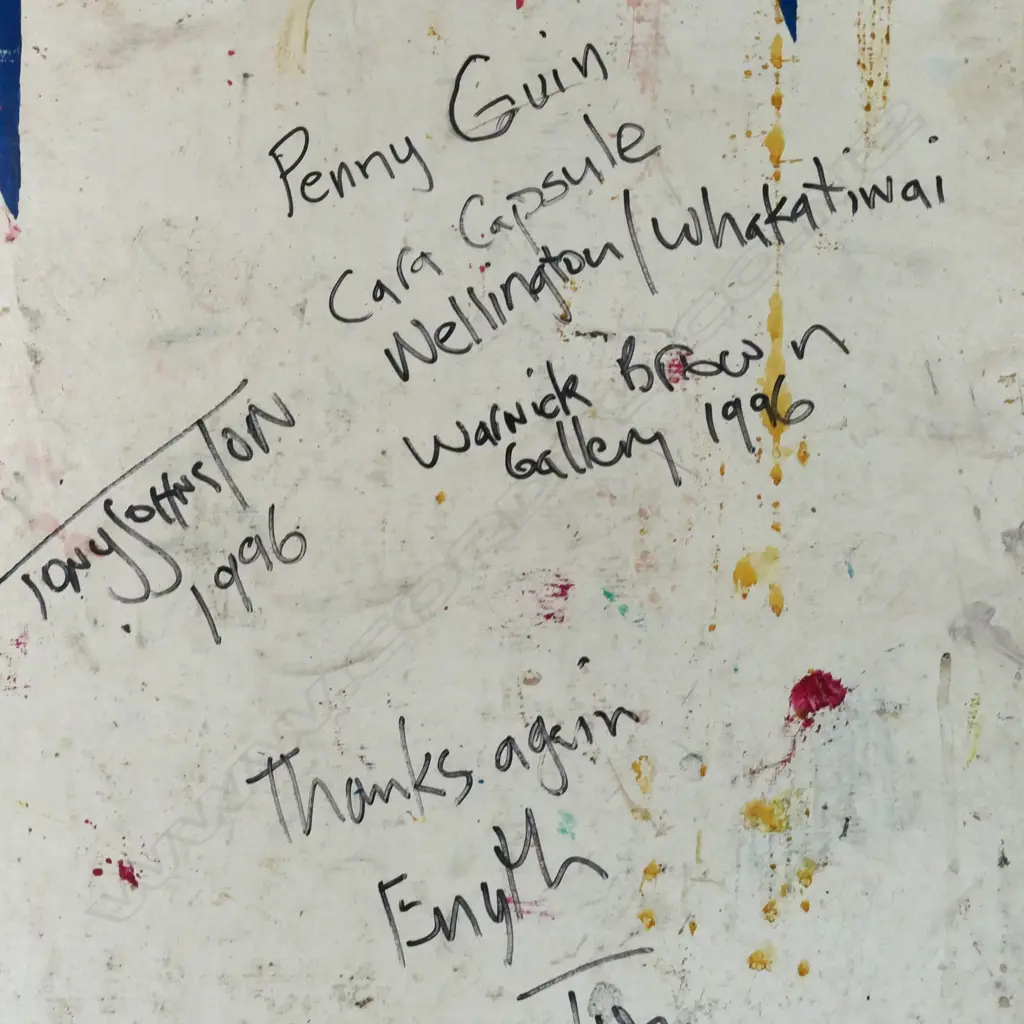 Penny Guin
Cara Capsule
Wellington/Whakatiwai
Warwick Brown
Gallery 1996
TONY JOHNSTON
1996
Thanks again